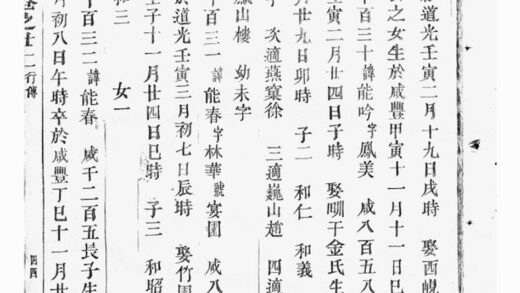 道光壬寅二月十九日戌時 娶西峴
之女生於咸豐甲寅十一月十一日巳
百三十 諱能吟 字鳳美 咸八百五八
壬寅二月廿四日子時 娶 干金氏生
月廿九日卯時 子二 和仁 和義
次適燕窠徐 三適巍山趙 四適
鳳山樓 幼未字
百三一 諱能春 字林華 號宴園 咸八
於道光壬寅三月初七日辰時 娶竹園
壬子十一月廿四日巳時 子三 和昭
和三 女一
千百三二 諱能春 咸千二百五長子生
月初八日午時卒於咸豐丁巳十一月廿
卷之廿二 行傳 四四